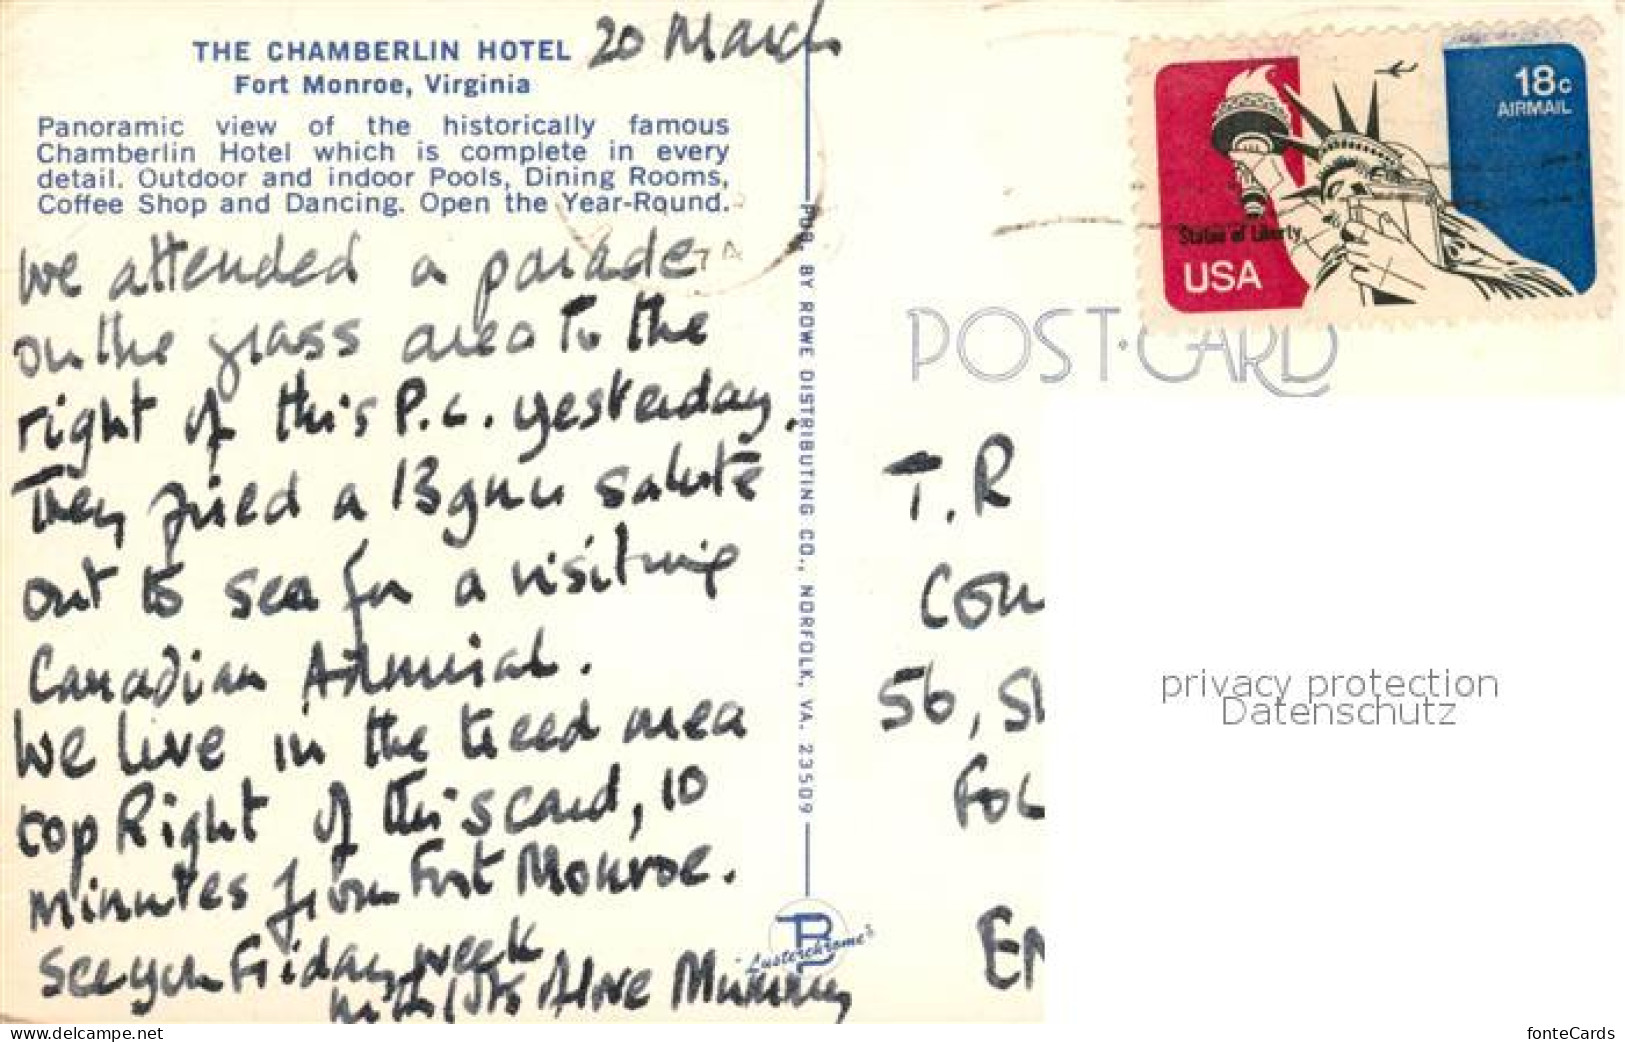 THE CHAMBERLIN HOTEL
Fort Monroe, Virginia
20 March
Panoramic view of the historically famous
Chamberlin Hotel which is complete in every
detail. Outdoor and indoor Pools, Dining Rooms,
Coffee Shop and Dancing. Open the Year-Round.
We attended a parade
on the grass area to the
right of this P.c. yesterday.
They fired a 13 gun salute
out to sea for a visiting
Canadian Admiral.
We live in the treed area
top Right of this card, 10
minutes from Fort Monroe.
See you Friday week
Murray
PUB. BY ROWE DISTRIBUTING CO., NORFOLK, VA. 23509
"Lusterchrome"
18c
AIRMAIL
Statue of Liberty
USA
POST·CARD
T.R
COU
56, S
FOL
EN
privacy protection
Datenschutz
www.delcampe.net
fonteCards